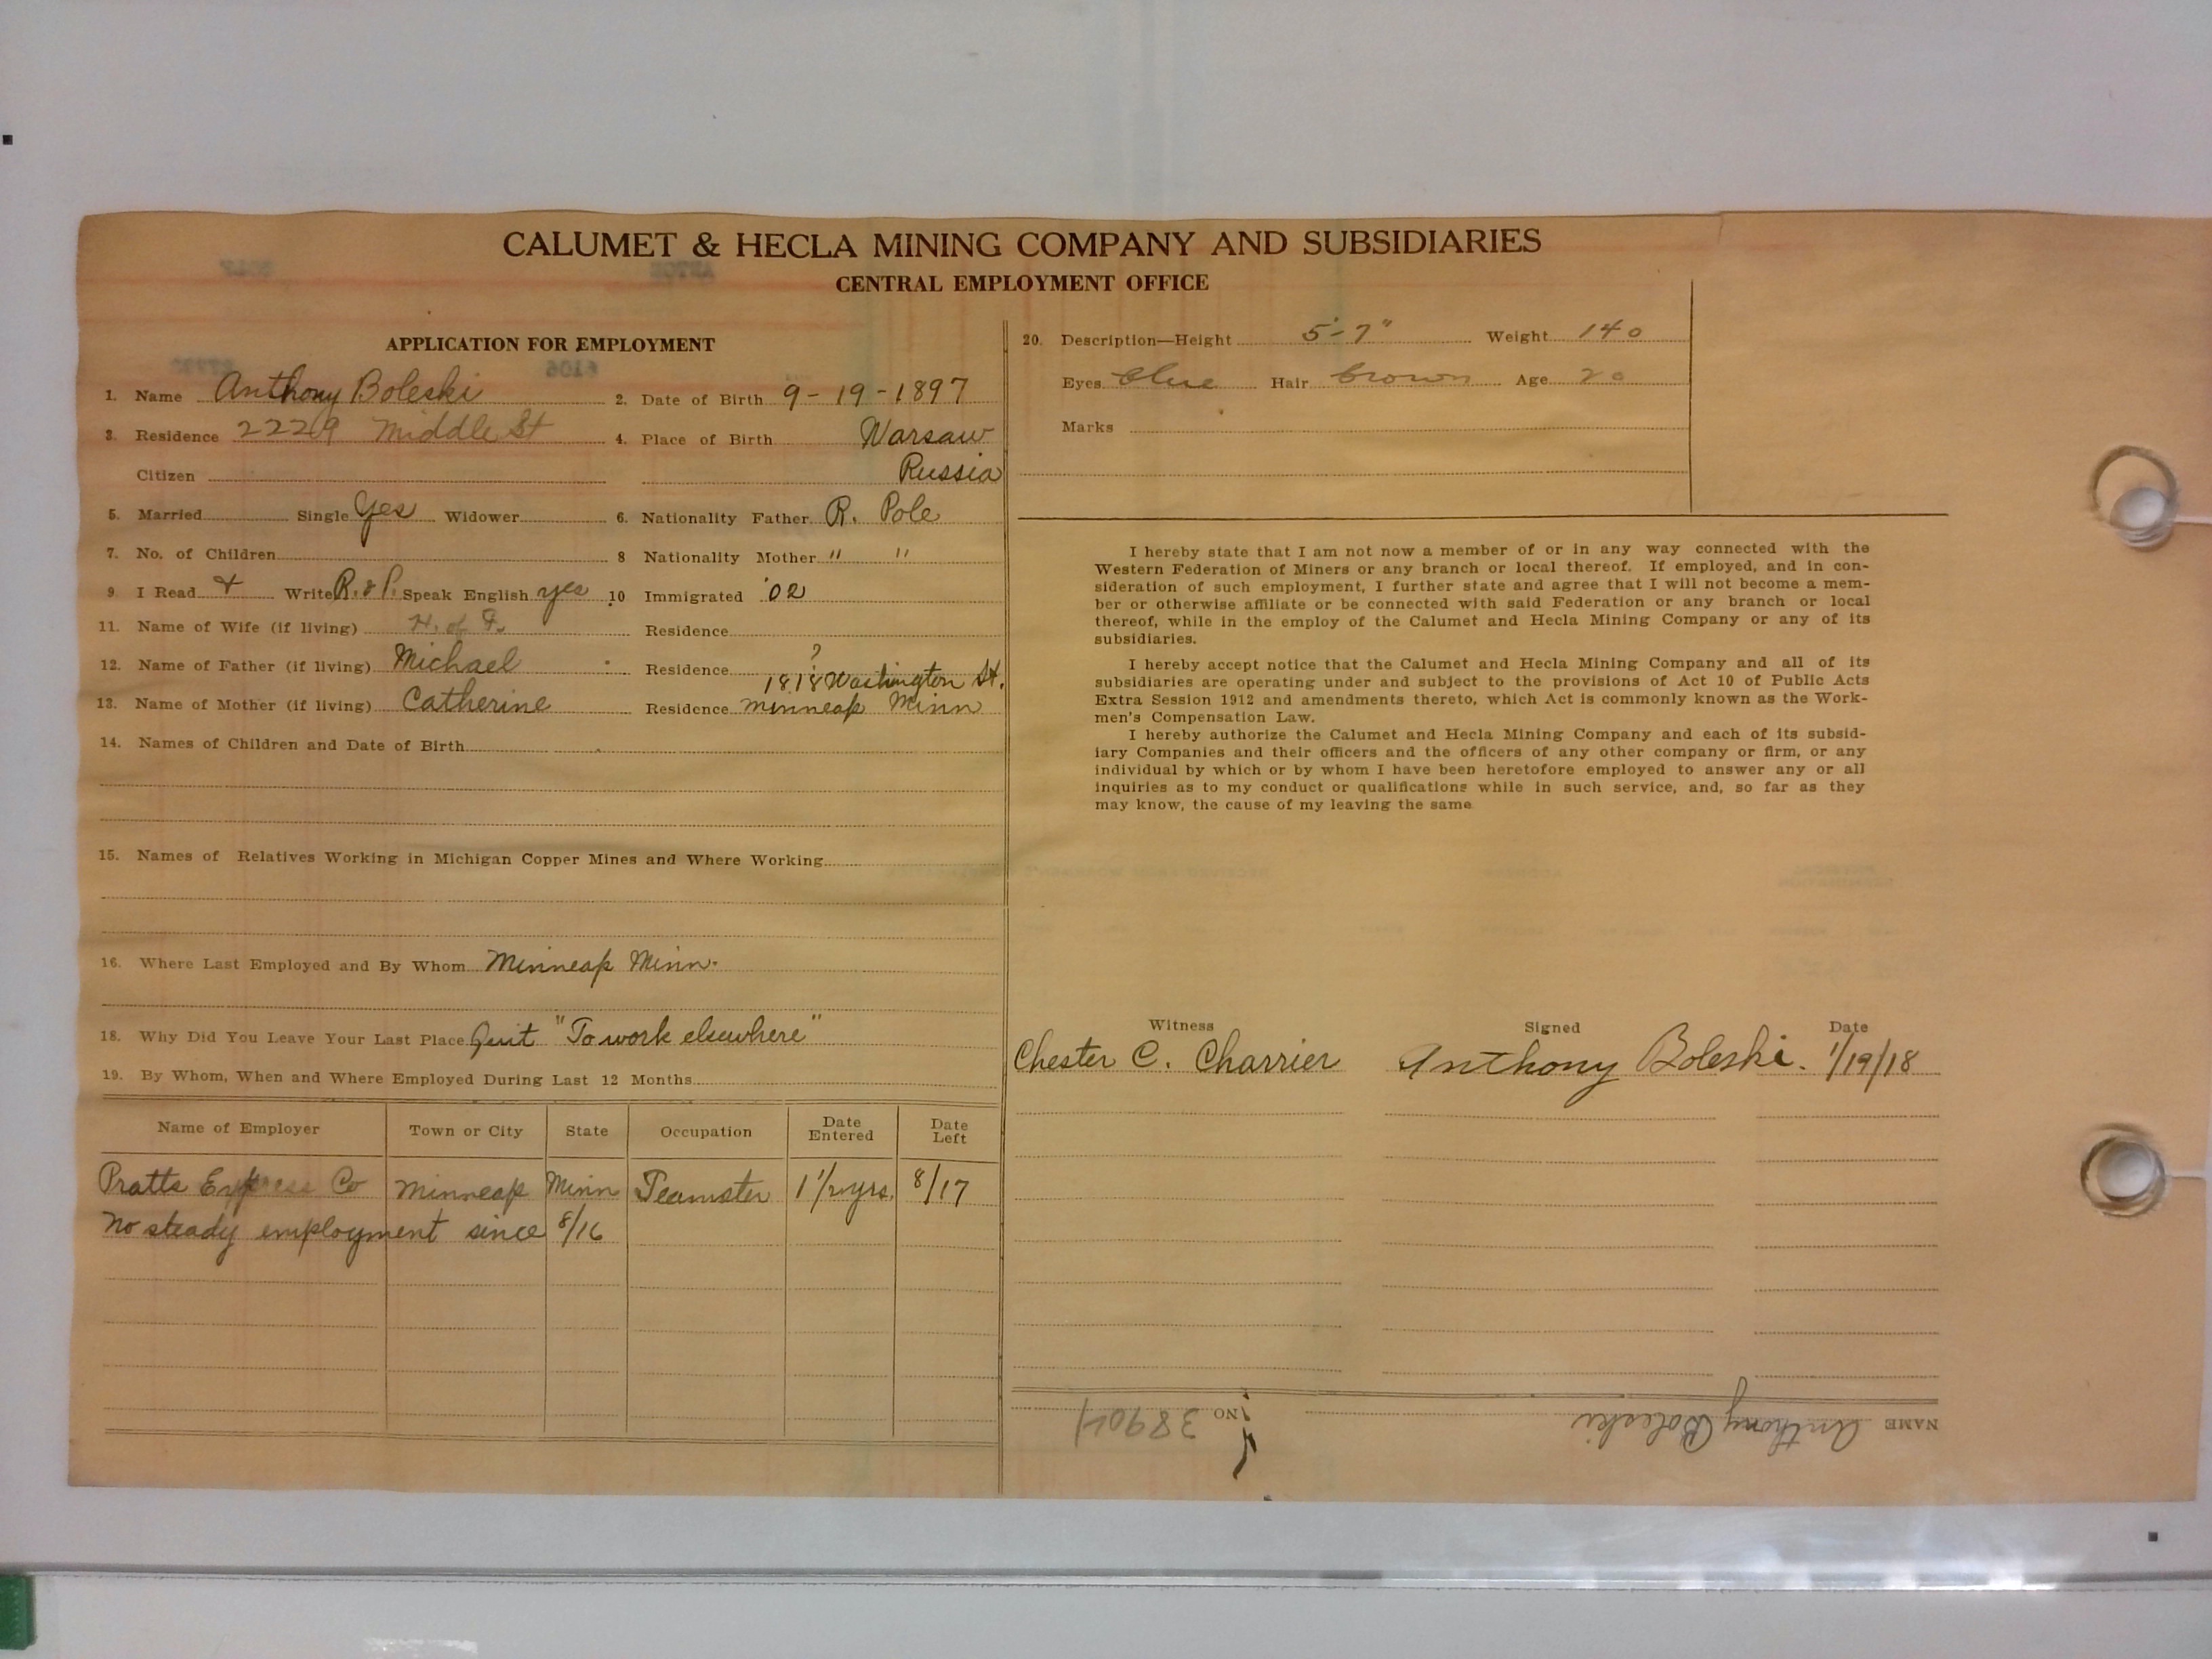 CALUMET & HECLA MINING COMPANY AND SUBSIDIARIES
CENTRAL EMPLOYMENT OFFICE
APPLICATION FOR EMPLOYMENT
1. Name Anthony Boleski 2. Date of Birth 9-19-1897
3. Residence 2229 Middle St 4. Place of Birth Warsaw
Citizen Russia
5. Married Single Yes Widower 6. Nationality Father R. Pole
7. No. of Children 8 Nationality Mother " "
9. I Read & Write R. & P. Speak English yes 10 Immigrated '02
11. Name of Wife (if living) H. of F. Residence
12. Name of Father (if living) Michael Residence ?
1818 Washington St.
13. Name of Mother (if living) Catherine Residence Minneap Minn
14. Names of Children and Date of Birth
15. Names of Relatives Working in Michigan Copper Mines and Where Working
16. Where Last Employed and By Whom Minneap Minn.
18. Why Did You Leave Your Last Place Quit "To work elsewhere"
19. By Whom, When and Where Employed During Last 12 Months
Name of Employer Town or City State Occupation Date Entered Date Left
Pratts Express Co Minneap Minn Teamster 1 1/2 yrs. 8/17
No steady employment since 8/16
20. Description—Height 5'-7" Weight 140
Eyes blue Hair brown Age 20
Marks
I hereby state that I am not now a member of or in any way connected with the
Western Federation of Miners or any branch or local thereof. If employed, and in con-
sideration of such employment, I further state and agree that I will not become a mem-
ber or otherwise affiliate or be connected with said Federation or any branch or local
thereof, while in the employ of the Calumet and Hecla Mining Company or any of its
subsidiaries.
I hereby accept notice that the Calumet and Hecla Mining Company and all of its
subsidiaries are operating under and subject to the provisions of Act 10 of Public Acts
Extra Session 1912 and amendments thereto, which Act is commonly known as the Work-
men's Compensation Law.
I hereby authorize the Calumet and Hecla Mining Company and each of its subsid-
iary Companies and their officers and the officers of any other company or firm, or any
individual by which or by whom I have been heretofore employed to answer any or all
inquiries as to my conduct or qualifications while in such service, and, so far as they
may know, the cause of my leaving the same
Witness Signed Date
Chester C. Charrier Anthony Boleski. 1/19/18
NAME Anthony Boleski NO. 38904